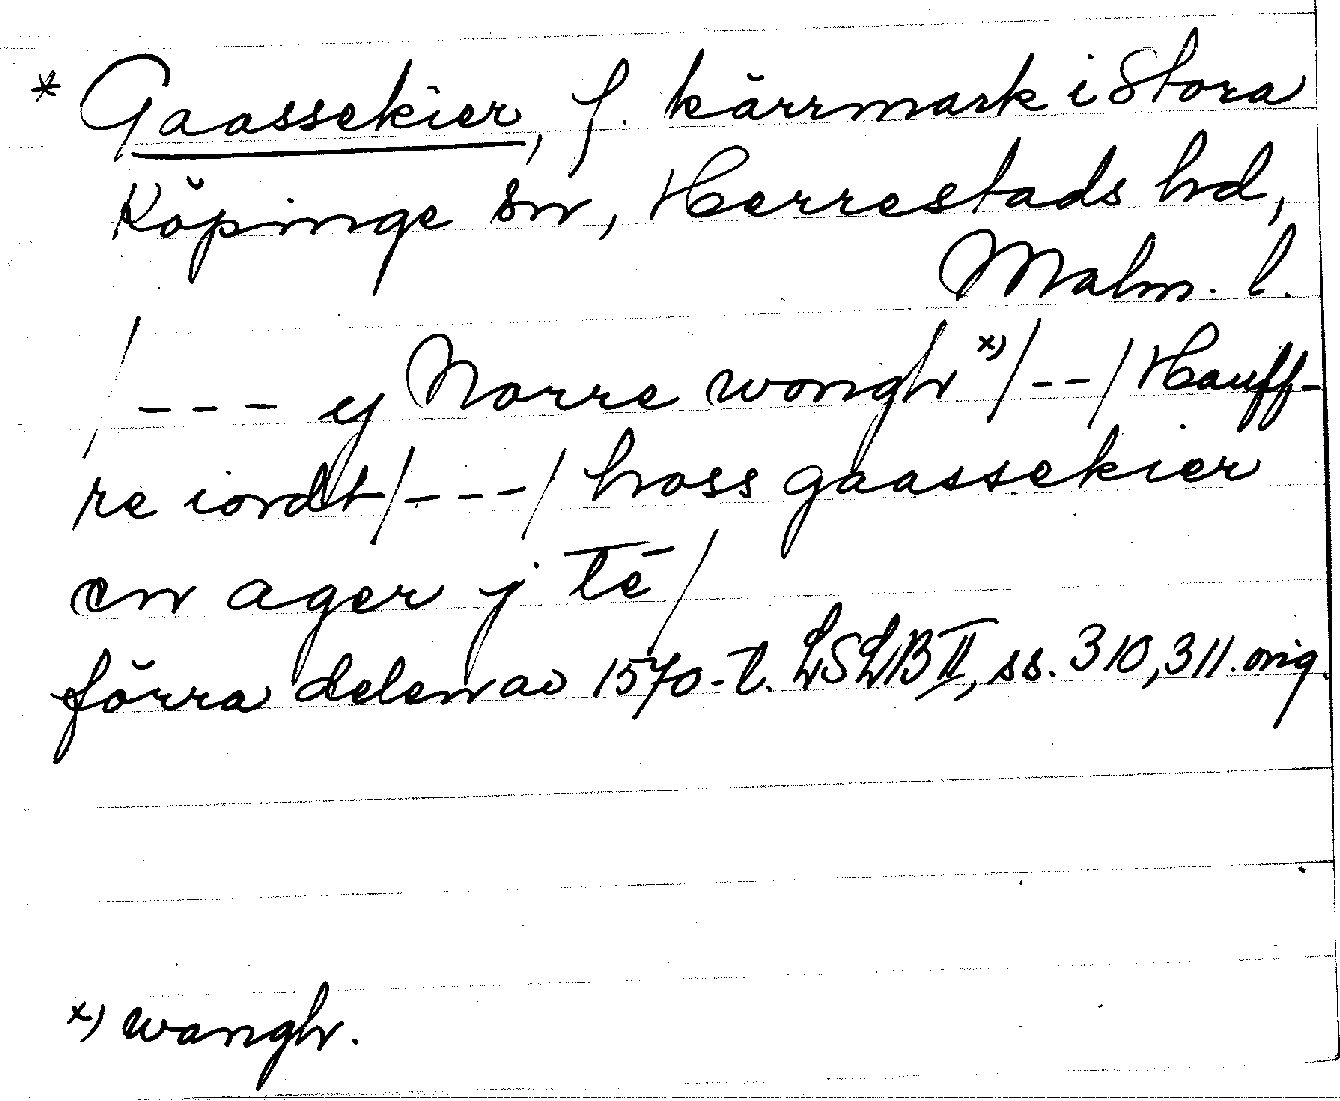 * Gaassekier, f. kärrmark i Stora
Köpinge sn, Herrestads hd,
Malm. l.
/--- ej Norre wongh x)/--/ Hauff-
re iordt/---/ hoss gaassekier
en ager j tē/
förra delen av 1570-t. LSLB II, ss. 310, 311. orig.
x) wangh.